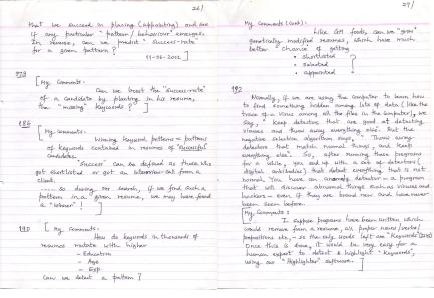 26/
that we succeed in placing (appointing) and see
if any particular "pattern/behaviour" emerges.
In reverse, can we predict "success-rate"
for a given pattern?
[ My Comments:
Can we boost the "success-rate"
of a candidate by planting in his resume,
the "missing" keywords? ]
186
[ My Comments:
Winning keyword patterns = patterns
of keywords contained in resumes of "successful"
candidates.
"Success" can be defined as those who
got shortlisted or got an interview-call from a
client.
..... so during our search, if we find such a
pattern in a given resume, we may have found
a "Winner"! ]
190 [ My Comments:
How do keywords in thousands of
resumes mutate with higher
- Education
- Age
- Exp
Can we detect a pattern? ]
27/
My Comments (cont):
Like GM foods, can we "grow"
genetically modified resumes, which have much
better chance of getting
• shortlisted
• selected
• appointed
?
192
Normally, if we are using the computer to learn how
to find something hidden among lots of data (like the
trace of a virus among all the files in the computer), we
say, "keep detectors that are good at detecting
viruses and throw away everything else. But the
negative selection algorithm says, "Throw away
detectors that match normal things, and keep
everything else". So, after running these programs
for a while, you end up with a set of programs (
digital antibodies) that detect everything that is not
normal. You have an anomaly detector - a program
that will discover abnormal things such as viruses and
hackers - even if they are brand new and have never
been seen before.
[ My Comments:
I suppose programs have been written which
would remove from a resume, all proper nouns/verbs/
prepositions etc, - so the only words left are "Keywords"
Once this is done, it would be very easy for a
human expert to detect & highlight "Keywords",
using our "Highlighter" software. ]